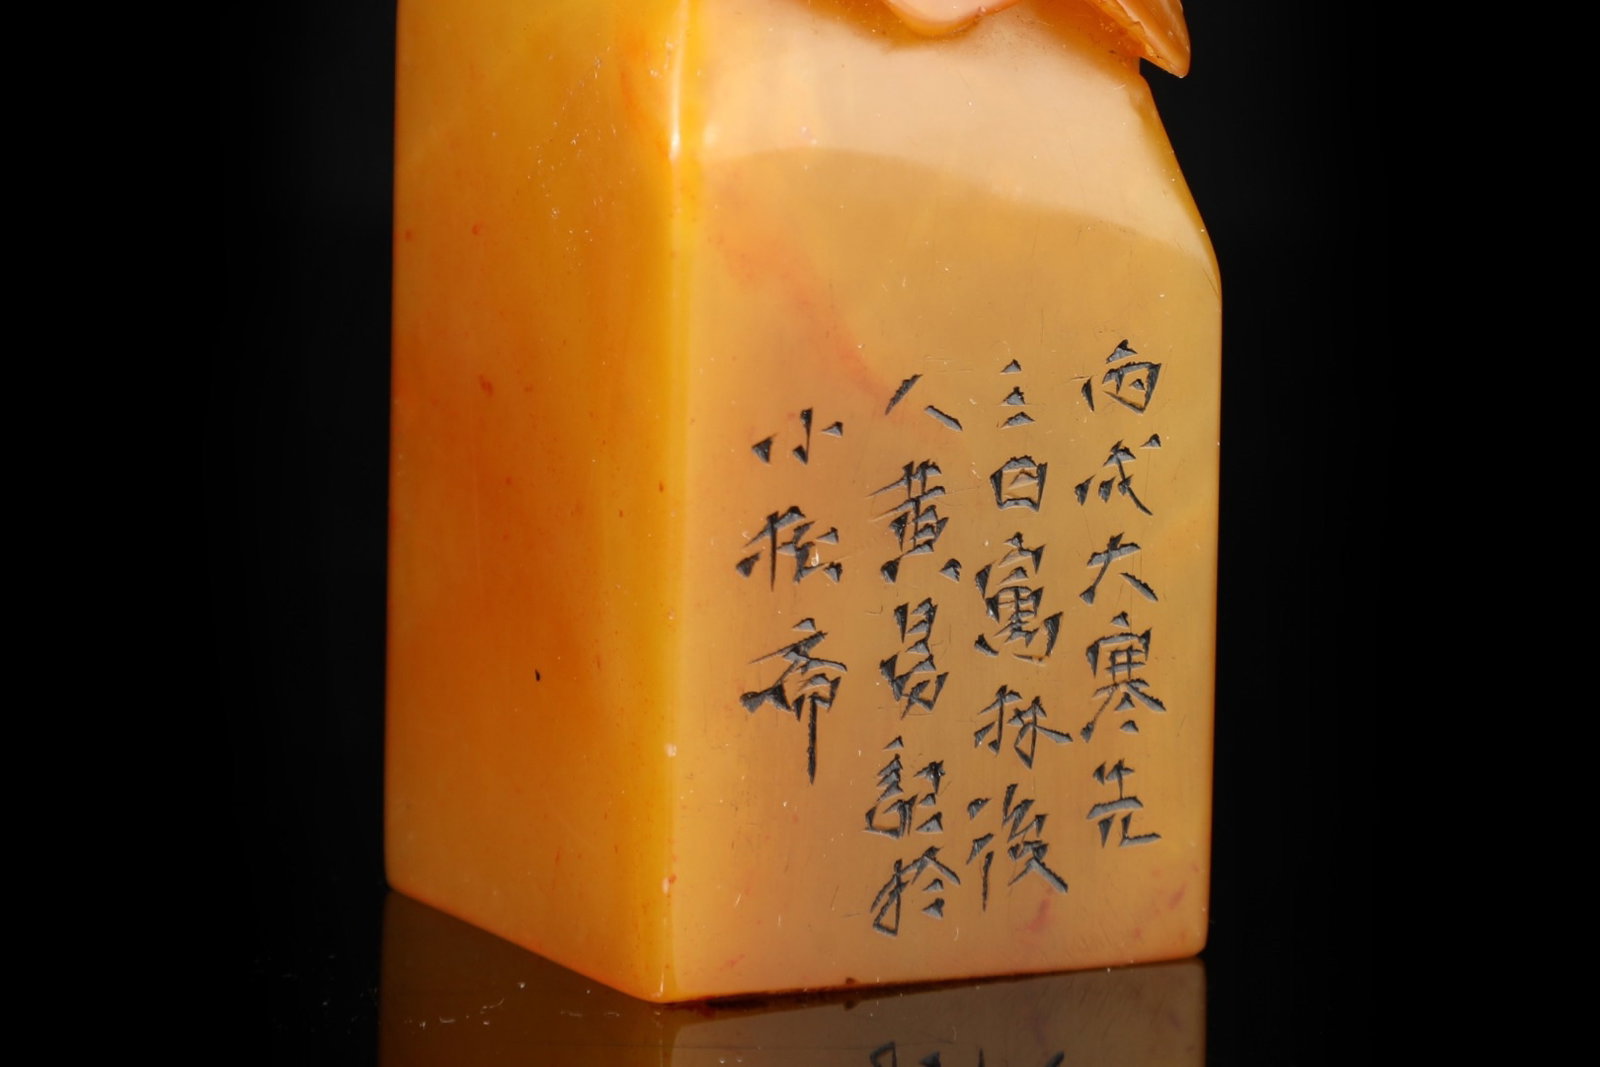 丙戌大寒先
三日寓林後
人黃易記於
小松齋